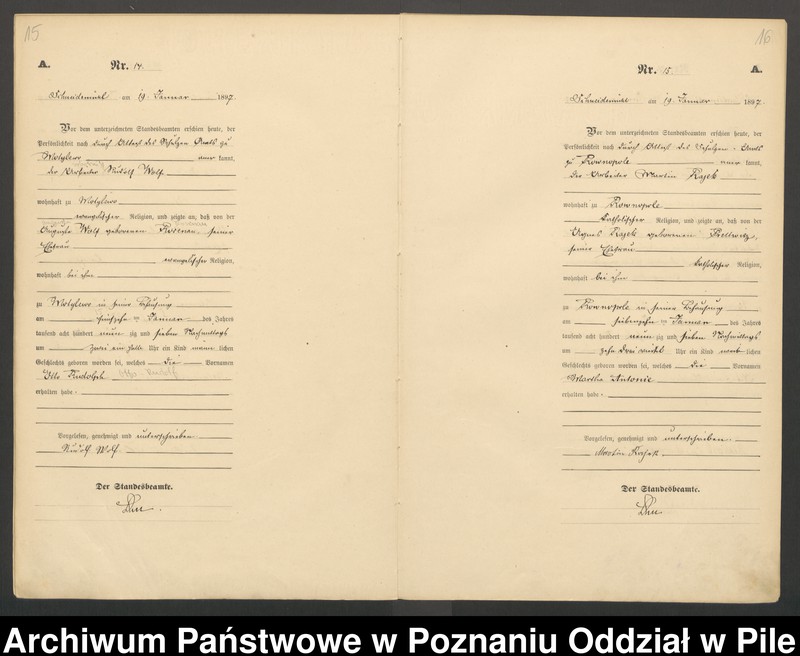 15
A. Nr. 14.
Schneidemühl am 19. Januar 1897
Vor dem unterzeichneten Standesbeamten erschien heute, der
Persönlichkeit nach durch Attest des Schulzen Amts zu
kannt,
der Arbeiter Rudolf Wolf
wohnhaft zu
evangelischer Religion, und zeigte an, daß von der
Auguste Wolf geborenen Rosenau, seiner
Ehefrau
evangelischer Religion,
wohnhaft bei ihm
zu in seiner Behausung
am fünfzehn ten Januar des Jahres
tausend acht hundert neun zig und sieben Nachmittags
um Uhr ein Kind männ lichen
Geschlechts geboren worden sei, welches die Vornamen
Otto Rudolph Otto Rudolf
erhalten habe
Vorgelesen, genehmigt und unterschrieben
Rudolf Wolf
Der Standesbeamte.
16
Nr. 15. A.
Schneidemühl am 19. Januar 1897
Vor dem unterzeichneten Standesbeamten erschien heute, der
Persönlichkeit nach durch Attest des Schulzen-Amts
zu Rownopole kannt,
der Arbeiter Martin Kajek
wohnhaft zu Rownopole
katholischer Religion, und zeigte an, daß von der
Agnes Kajek geborenen
seiner Ehefrau
katholischer Religion,
wohnhaft bei ihm
zu Rownopole in seiner Behausung
am siebenzehn ten Januar des Jahres
tausend acht hundert neun zig und sieben Nachmittags
um zehn drei viertel Uhr ein Kind weib lichen
Geschlechts geboren worden sei, welches die Vornamen
Martha Antonie
erhalten habe
Vorgelesen, genehmigt und unterschrieben
Martin Kajek
Der Standesbeamte.
Archiwum Państwowe w Poznaniu Oddział w Pile